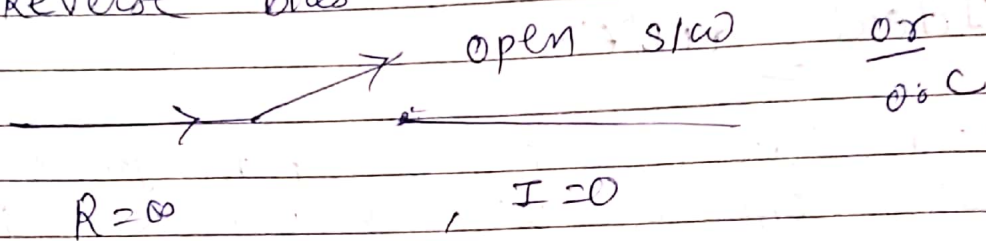 Reverse Bias
open s/w or
O.C
R = ∞ , I = 0